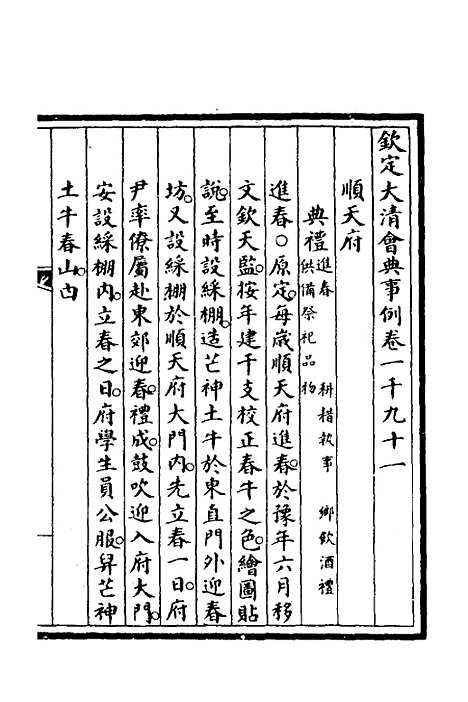 欽定大清會典事例卷一千九十一
順天府
典禮進春 耕耤執事 鄉飲酒禮 供備祭祀品物
進春○原定。每歲順天府進春。於豫年六月移
文欽天監。按年建干支校正春牛之色。繪圖貼
說。至時設綵棚。造芒神土牛於東直門外迎春
坊。又設綵棚於順天府大門內。先立春一日。府
尹率僚屬赴東郊迎春。禮成。鼓吹迎入府大門。
安設綵棚內。立春之日。府學生員公服。舁芒神
土牛春山。由